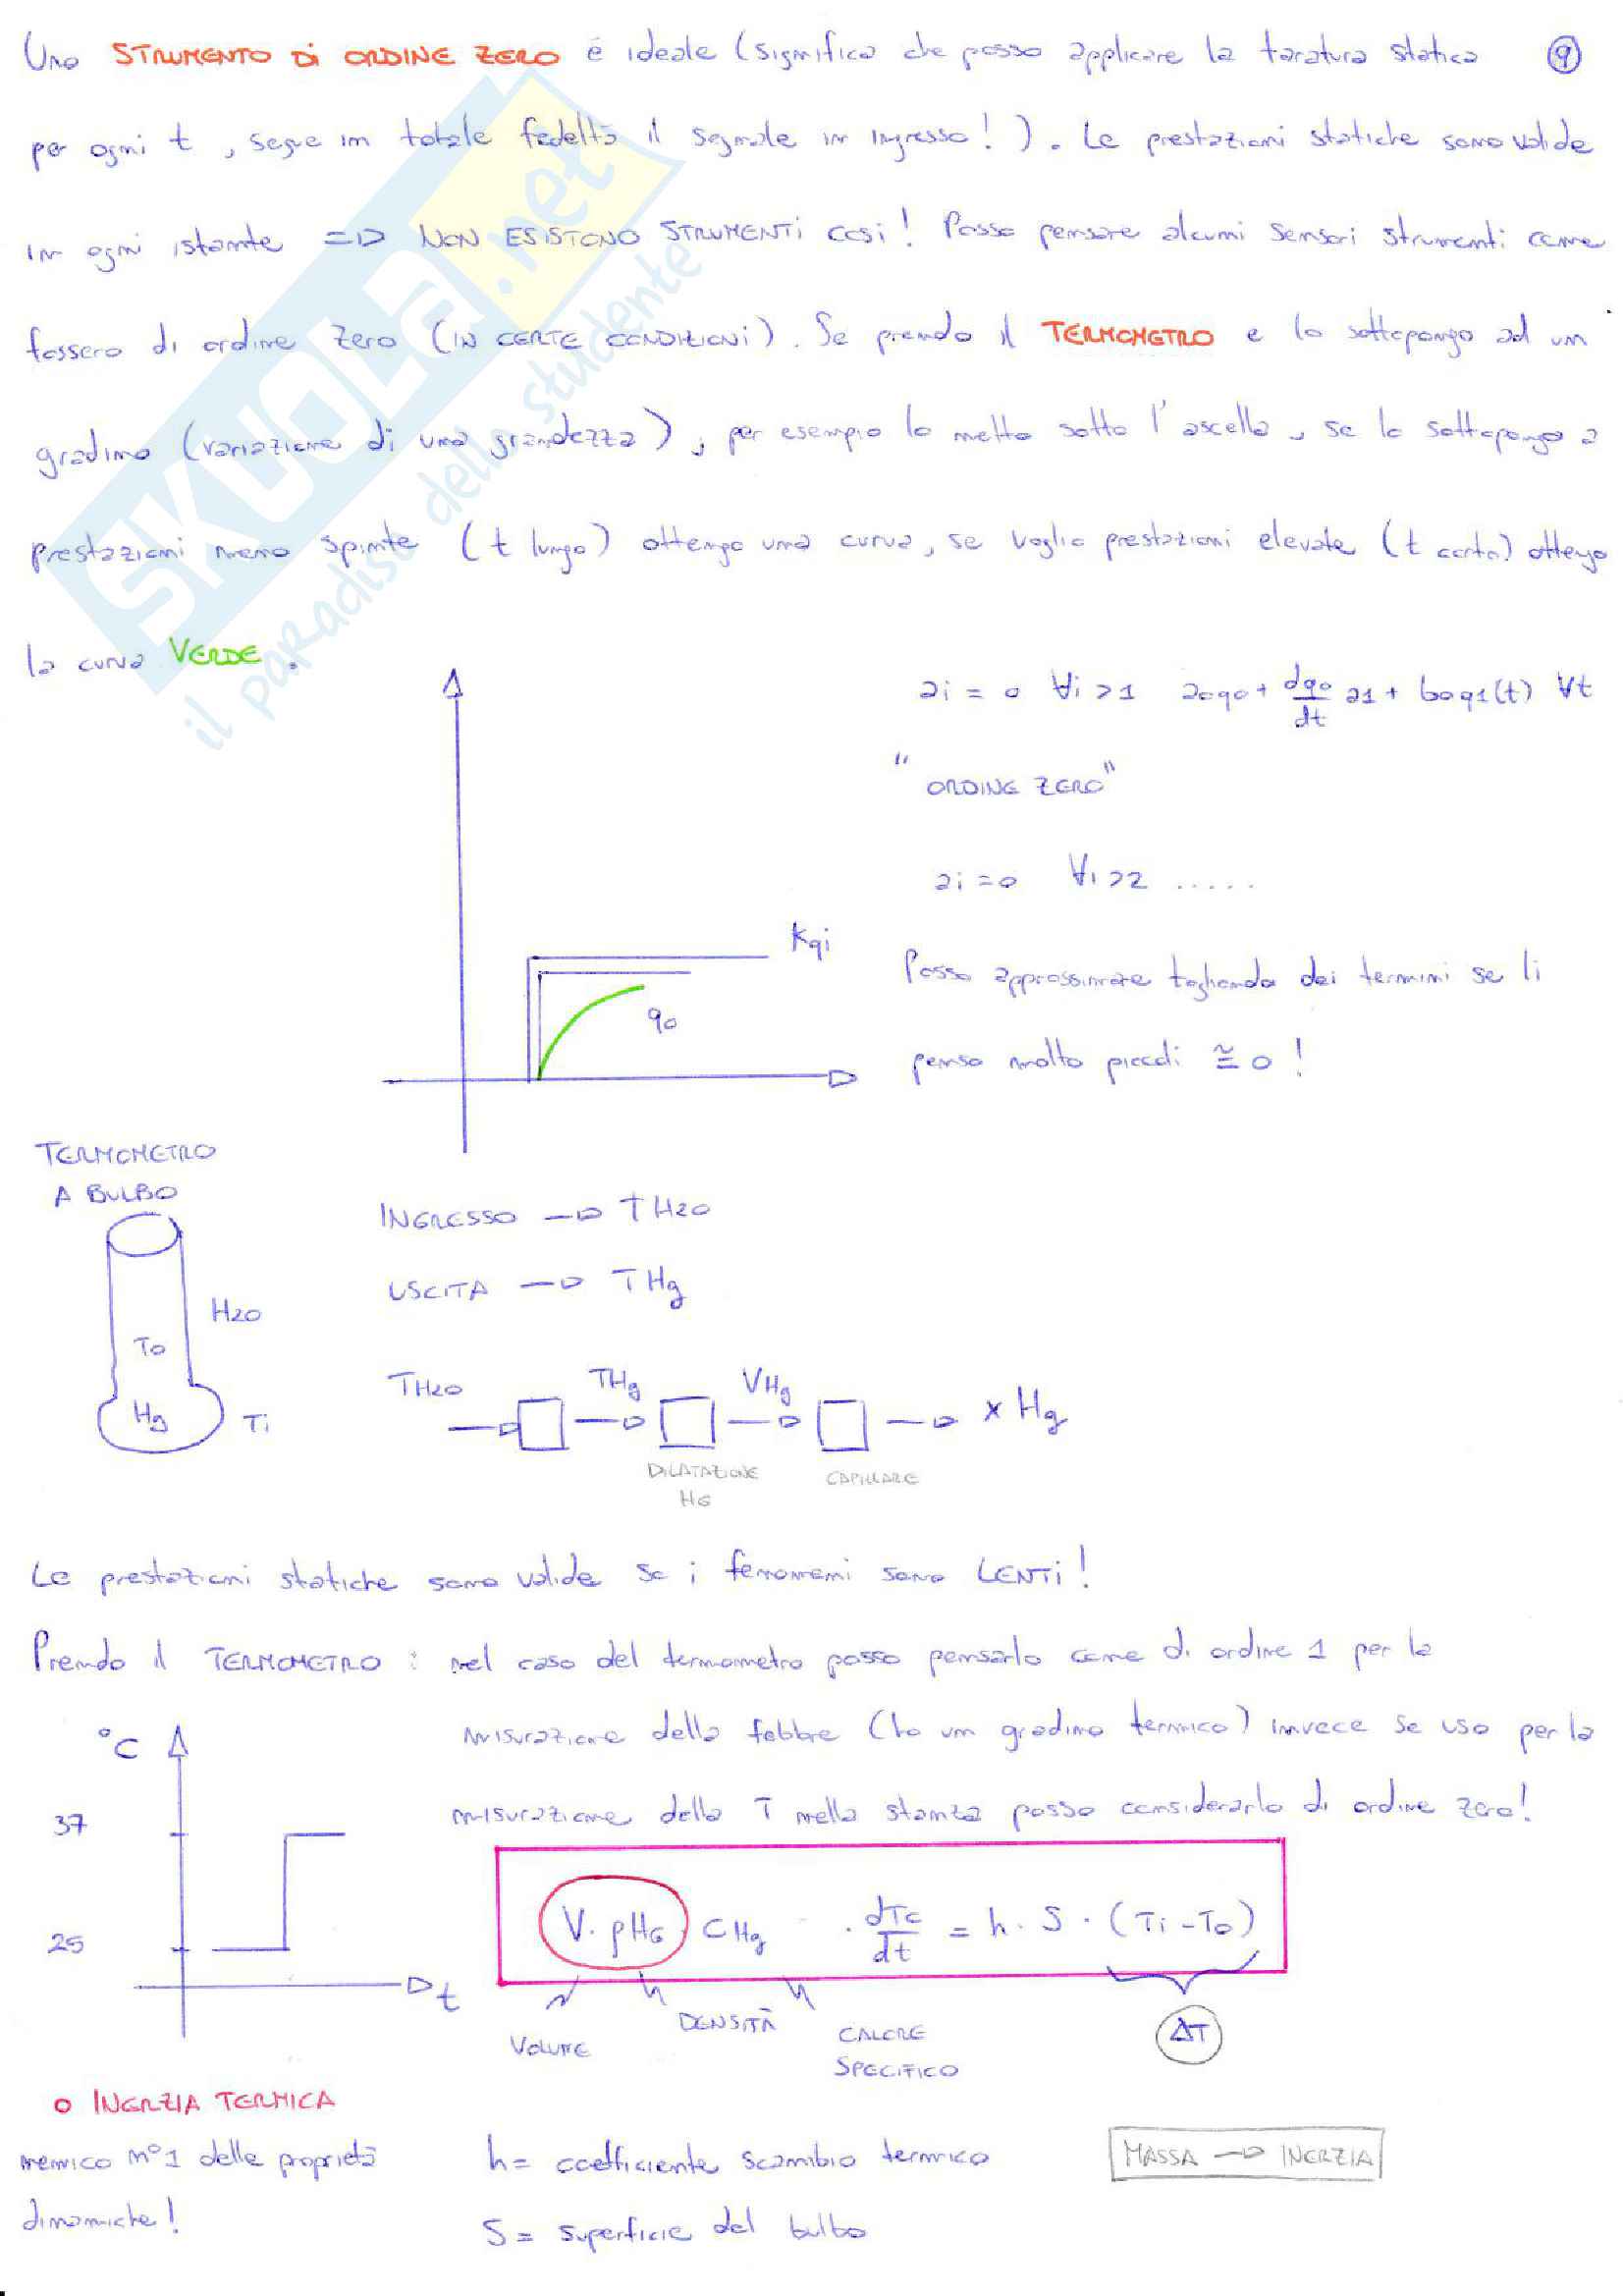 Uno STRUMENTO DI ORDINE ZERO è ideale (significa che posso applicare la taratura statica 9
per ogni t, segue in totale fedeltà il segnale in ingresso!). Le prestazioni statiche sono valide
in ogni istante => NON ESISTONO STRUMENTI così! Posso pensare alcuni sensori strumenti come
fossero di ordine zero (IN CERTE CONDIZIONI). Se prendo il TERMOMETRO e lo sottopongo ad un
gradino (variazione di una grandezza), per esempio lo metto sotto l'ascella, se lo sottopongo a
prestazioni meno spinte (t lungo) ottengo una curva, se voglio prestazioni elevate (t corto) ottengo
la curva VERDE.
SKUOLA.net
il paradiso dello studente
ai = 0 ∀i > 1 a0q0 + dq0/dt a1 + b0q1(t) ∀t
"ORDINE ZERO"
ai = 0 ∀i > 2 .....
Kqi
q0
Posso approssimare tagliando dei termini se li
penso molto piccoli ≅ 0!
TERMOMETRO
A BULBO
H2O
To
Hg
Ti
INGRESSO → TH2O
USCITA → THg
TH2O → □ THg → □ VHg → □ → x Hg
DILATAZIONE
HG
CAPILLARE
Le prestazioni statiche sono valide se i fenomeni sono LENTI!
Prendo il TERMOMETRO: nel caso del termometro posso pensarlo come di ordine 1 per la
misurazione della febbre (ho un gradino termico) invece se uso per la
misurazione della T nella stanza posso considerarlo di ordine zero!
°C
37
25
t
V · ρHG CHg · dTc/dt = h · S · (Ti - To)
VOLUME
DENSITÀ
CALORE
SPECIFICO
ΔT
o INERZIA TERMICA
nemico n°1 delle proprietà
dinamiche!
h = coefficiente scambio termico
S = superficie del bulbo
MASSA → INERZIA